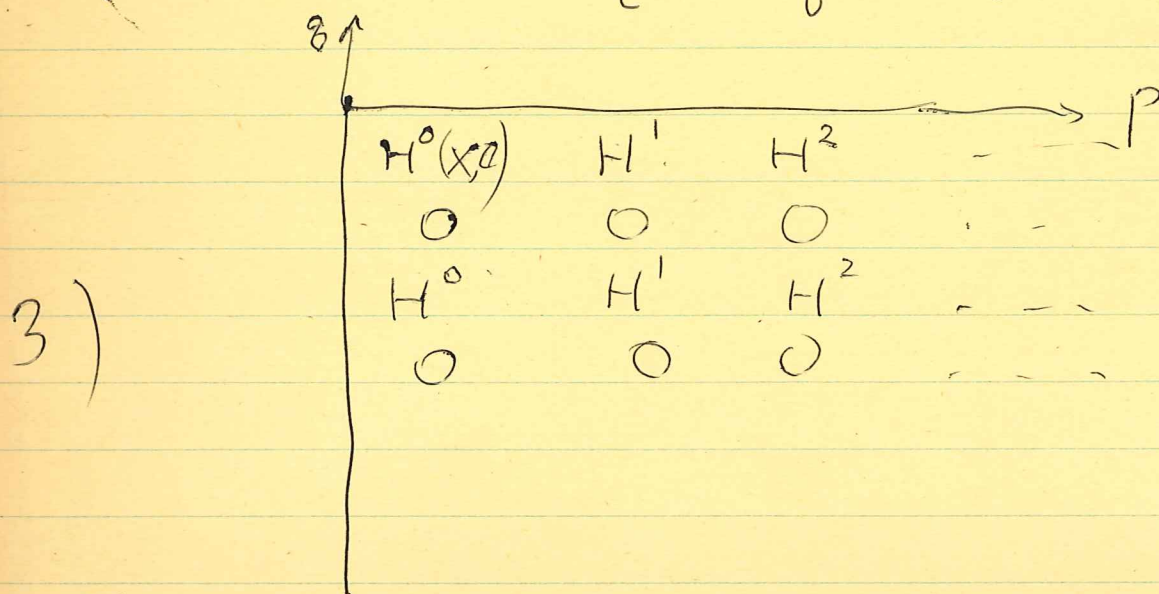 q
p
H⁰(X,ℂ) H¹ H² - —
0 0 0 . -
H⁰ H¹ H² - - -
3)
0 0 0 - - - -